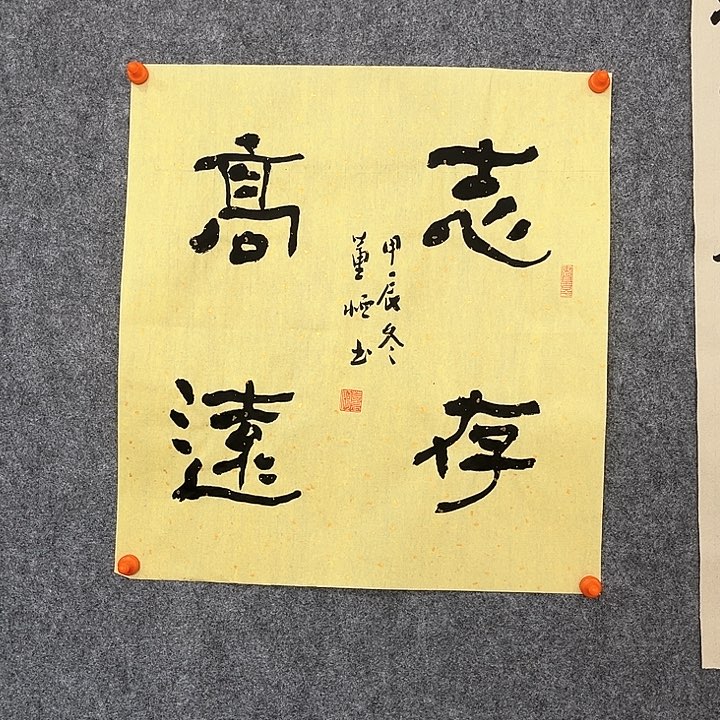 志存
高遠
甲辰冬
董恒书